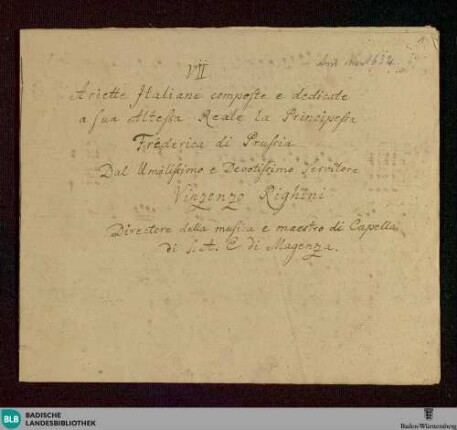 VII
Ariette Italiane composte e dedicate
a sua Altessa Reale la Principessa
Frederica di Prussia
Dal Umilissimo e Devotissimo Servitore
Vinzenzo Righini
Directore della musica e maestro di Capella
di S. A. E di Magenza.
BLB
BADISCHE
LANDESBIBLIOTHEK
Baden-Württemberg